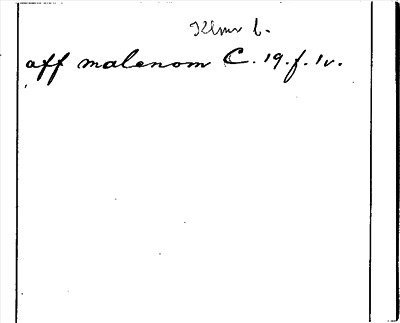 Klmr b.
aff malenom C. 19. f. 1v.